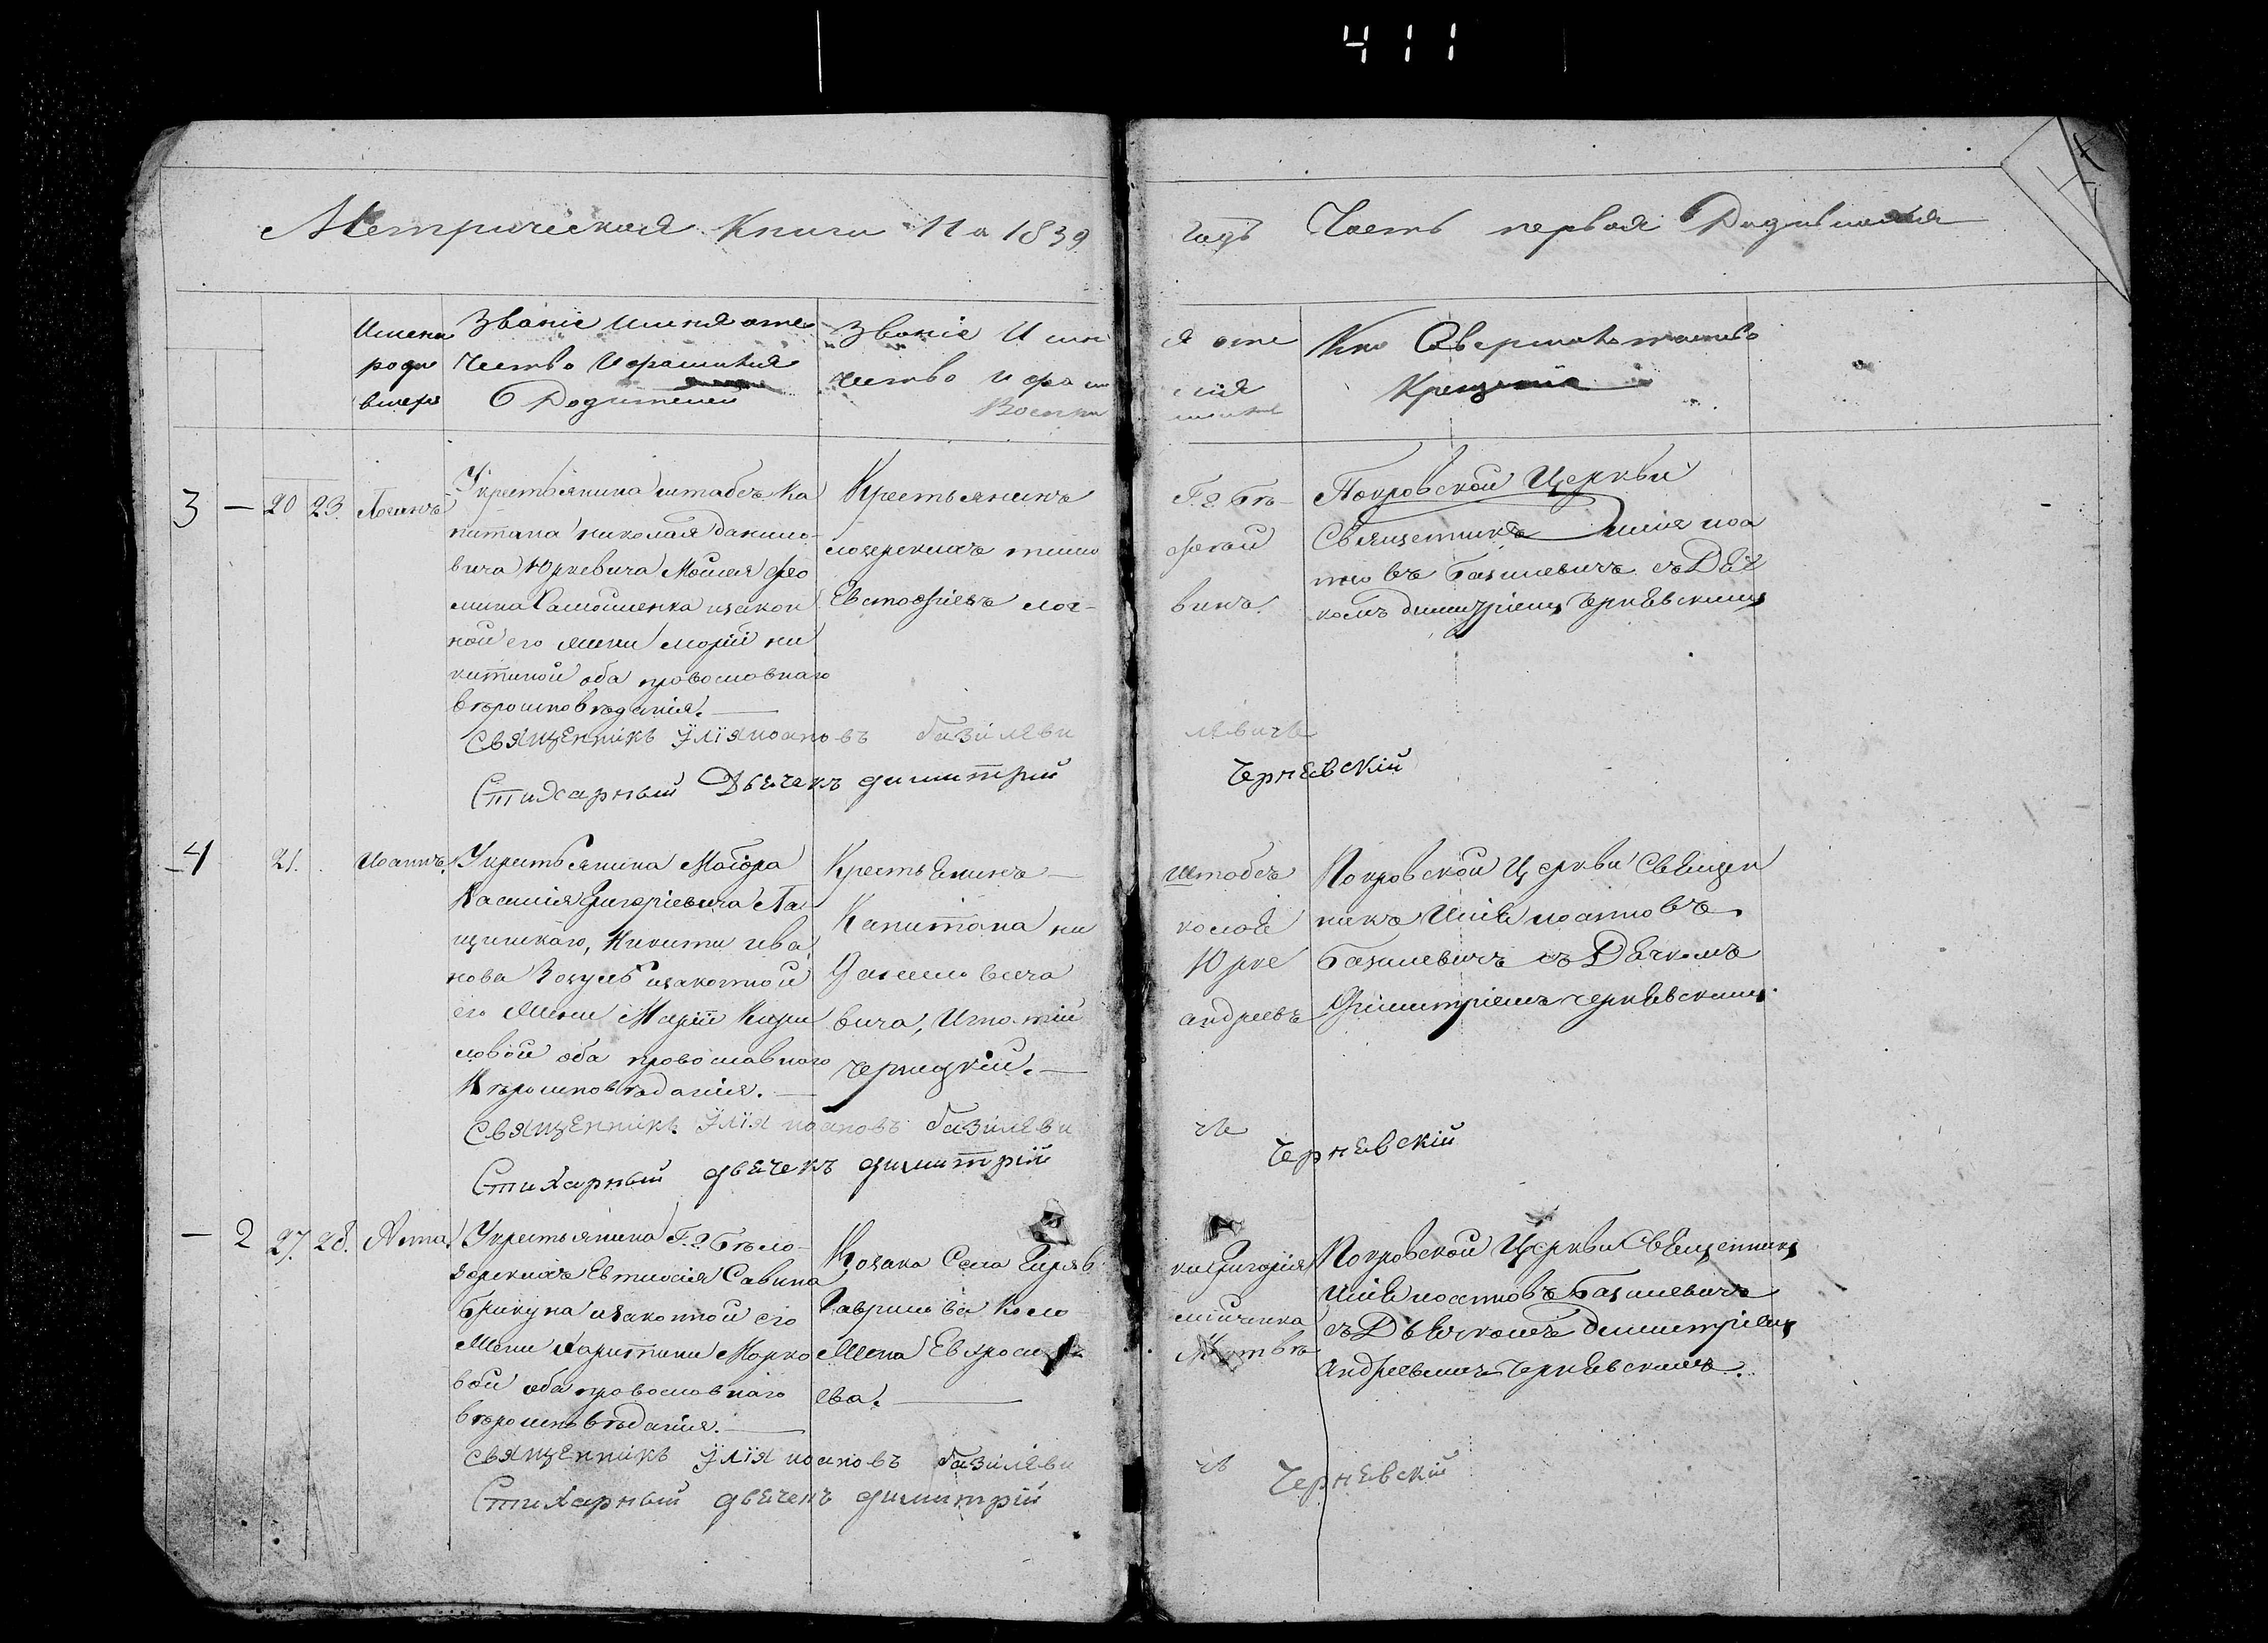 411
Метрическая Книга На 1839 годъ Часть первая О Родившихся
Имена
роди
вшихъ
Званіе имя и оте
чество и фамилия
Родителей
Званіе И имя оте
чество и фамилия
Кто Совершалъ таинство
Крещенія
3 — 20 23. Логинъ
Укрестьянина штабсъ ка
питана николая данило
вича Юркевича Моисея Фео
мина изакон
ной его жени маріи ни
китиной оба православнаго
вѣроисповѣданія.
Крестьянинъ Г. г. Бѣ-
лозерскихъ
Евстафіевъ
Покровской Церкви
Священникъ Илия иоа
новъ Базилевичъ съ Дяч
комъ димитріемъ Чернявскимъ
Священникъ Илїя иоановъ базилевичъ
Стихарный Дьячекъ димитрій Чернявскій
4 21. Иоаннъ.
Укрестьянина Маіора
Василія Григоріевича
Никити ива
нова изаконной
его жени Маріи Кири
ловой оба православнаго
Вѣроисповѣданія.
Крестьянинъ штабсъ
Капитана николая
Данииловича Юрке
вича, Игнатій андреевъ
Черницкій.
Покровской Церкви Священ
никъ Илия иоанновъ
Базилевичъ съ Дячкомъ
Димитріемъ чернявскимъ.
Священникъ Илїя иоановъ базилевичъ
Стихарный дьячекъ димитрій Чернявскій
— 2 27. 28. Анна.
Укрестьянина Г. г. Бѣло-
зерскихъ Евтихія Савина
Брикуна изаконной его
жени Харитини Марко
вой оба православнаго
вѣроисповѣданія.
Козака Села Григорія
Гаврилова
жена Евфросинія Матвѣ
ева.
Покровской Церкви Священникъ
Илия иоанновъ Базилевичъ
съ Дьячкомъ Димитріемъ
Андреевичемъ Чернявскимъ.
Священникъ Илїя иоановъ базилевичъ
Стихарный дьячекъ димитрій Чернявскій